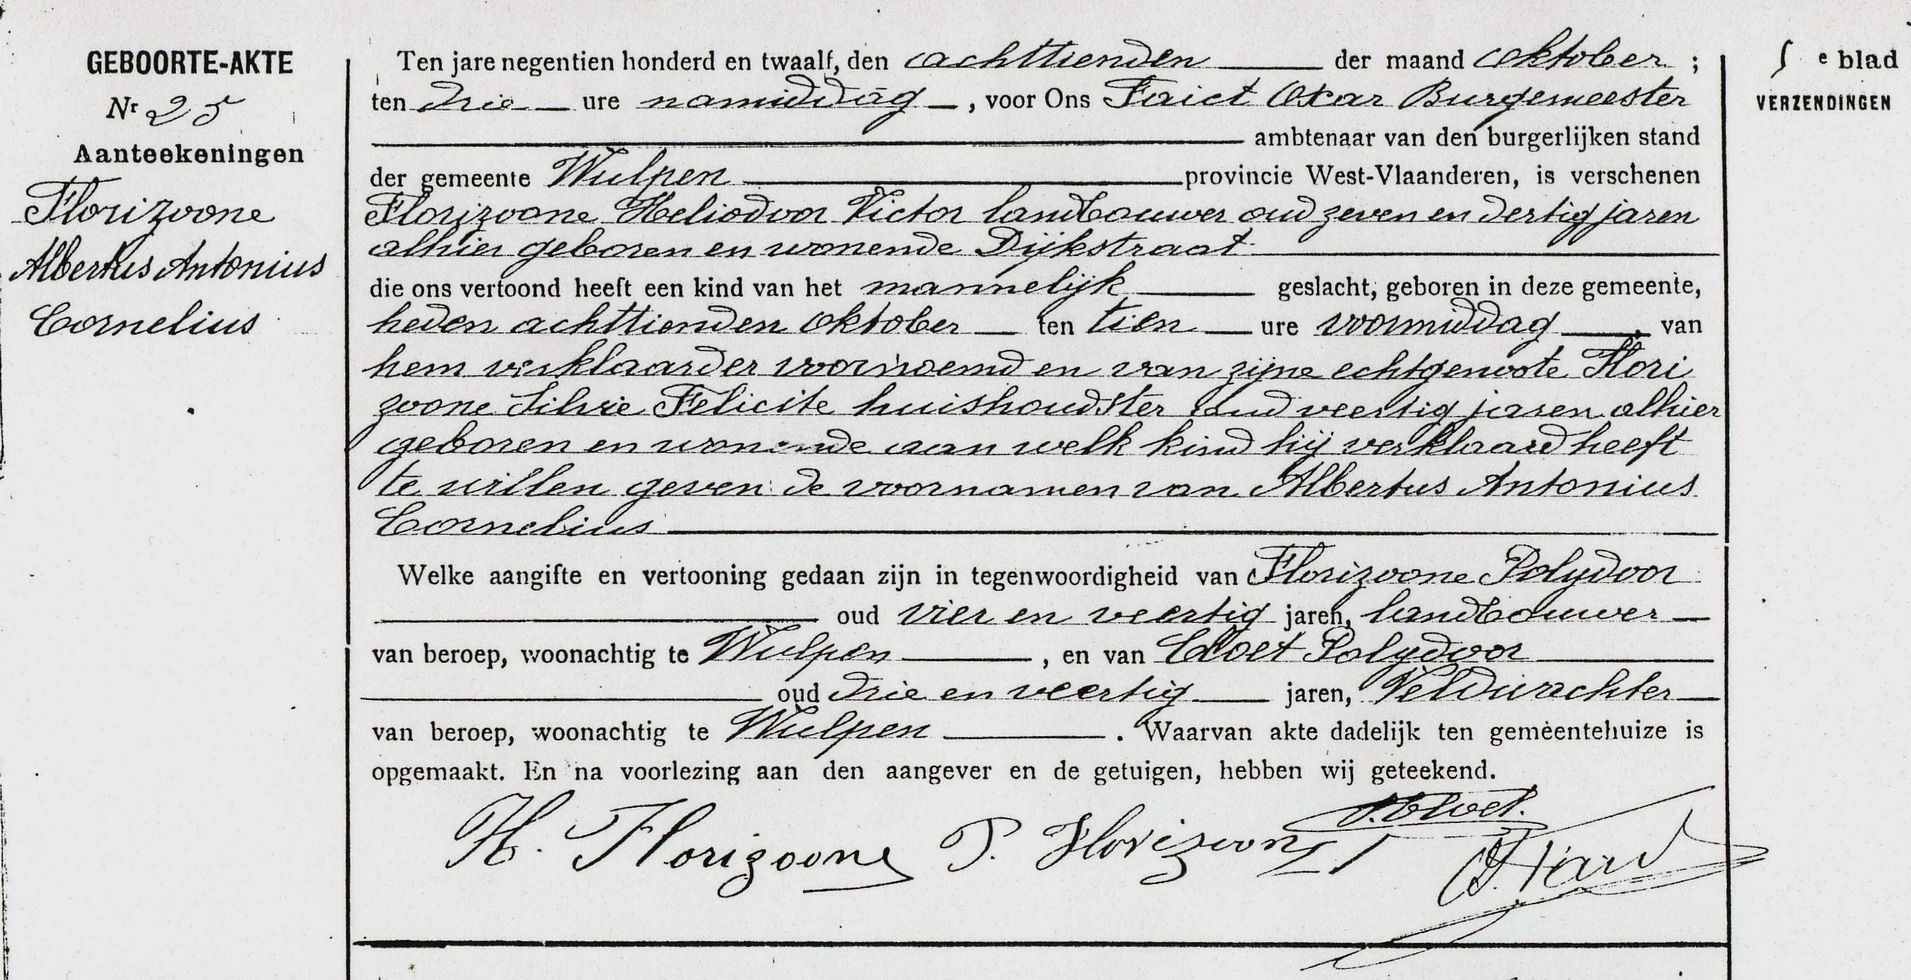 GEBOORTE-AKTE
Nr 25
Aanteekeningen
Florizoone
Albertus Antonius
Cornelius
Ten jare negentien honderd en twaalf, den achttienden der maand Oktober ;
ten drie ure namiddag , voor Ons Faict Oscar Burgemeester
ambtenaar van den burgerlijken stand
der gemeente Wulpen provincie West-Vlaanderen, is verschenen
Florizoone Heliodoor Victor landbouwer oud zeven en dertig jaren
alhier geboren en wonende Dijkstraat
die ons vertoond heeft een kind van het mannelijk geslacht, geboren in deze gemeente,
heden achttienden Oktober ten tien ure voormiddag , van
hem verklaarder voornoemd en van zijne echtgenoote Flori
zoone Silvie Felicite huishoudster oud veertig jaren alhier
geboren en wonende aan welk kind hij verklaard heeft
te willen geven de voornamen van Albertus Antonius
Cornelius
Welke aangifte en vertooning gedaan zijn in tegenwoordigheid van Florizoone Polydoor
oud vier en veertig jaren, landbouwer
van beroep, woonachtig te Wulpen , en van Cloet Polydoor
oud drie en veertig jaren, Veldwachter
van beroep, woonachtig te Wulpen . Waarvan akte dadelijk ten gemeentehuize is
opgemaakt. En na voorlezing aan den aangever en de getuigen, hebben wij geteekend.
P. Cloet.
H. Florizoone P. Florizoone
e blad
VERZENDINGEN